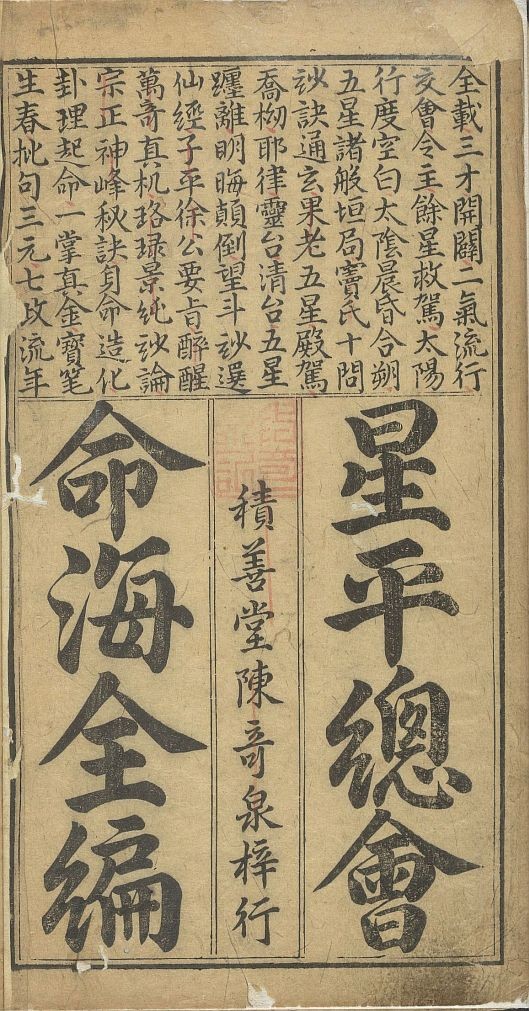 全載三才開闢二氣流行
交會令主餘星救駕太陽
行度空白太陰晨昏合朔
五星諸般垣局竇氏十問
玅訣通玄果老五星殿駕
喬拗耶律靈台清台五星
躔離明晦顛倒望斗玅選
仙經子平徐公要旨醉醒
萬奇真机珞琭景純玅論
宗正神峰秘訣負命造化
卦理起命一掌真金寶笔
生春批句三元七政流年
星平總會
積善堂陳奇泉梓行
命海全編